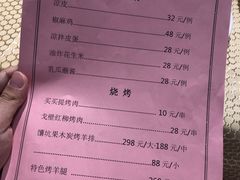 凉皮 32 元/例
椒麻鸡 48 元/例
凉拌皮蛋 28 元/例
油炸花生米 28 元/例
乳瓜蘸酱 28 元/例
烧烤
买买提烤肉 10 元/串
戈壁红柳烤肉 28 元/串
馕坑果木炭烤羊排 298 元/大·188 元/中
88 元/小
特色烤羊腿